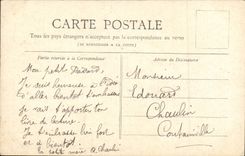 CARTE POSTALE
Tous les pays étrangers n'acceptent pas la correspondance au verso
(SE RENSEIGNER A LA POSTE)
Partie réservée à la Correspondance
Adresse du Destinataire
Mon petit
Je suis heureuse à
d'aller bientôt
je vais t'apporter ton
livre de
Je t'embrasse bien fort
et à bientôt
ta
Monsieur
Edouard
Chaulin
Coutainville